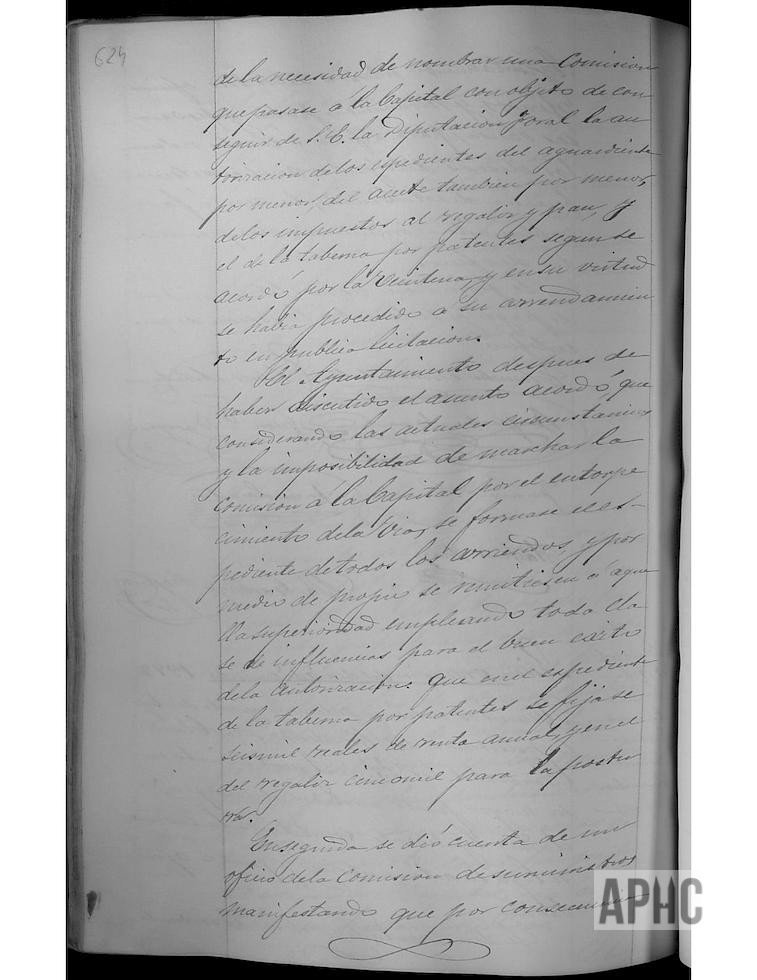 624
de la necesidad de nombrar una Comision
que pasase á la Capital con objeto de con
seguir de S. E. la Diputacion Foral la au
torizacion de los espedientes del aguardiente
por menor, del aceite tambien por menor,
de los impuestos al regaliz y pan, y
el de la taberna por patentes segun se
acordó por la Veintena, y en su virtud
se habia procedido a su arrendamien
to en publica licitacion.
El Ayuntamiento despues de
haber discutido el asunto acordó que
considerando las actuales circunstancias
y la imposibilidad de marchar la
comision á la Capital por el entorpe
cimiento de la Via, se formase el es-
pediente de todos los arriendos y por
medio de propio se remitiesen á aque
lla superioridad empleando toda cla
se de influencias para el buen exito
de la autorizacion: que en el espediente
de la taberna por patentes se fijase
seis mil reales de renta anual, y en el
del regaliz cinco mil para la postu
ra.
Enseguida se dió cuenta de un
oficio de la Comision de suministros
manifestando que por consecuencia
APHC